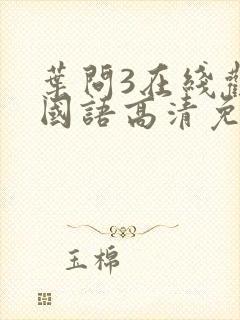 葉問3在綫
國語高清免
玉棉